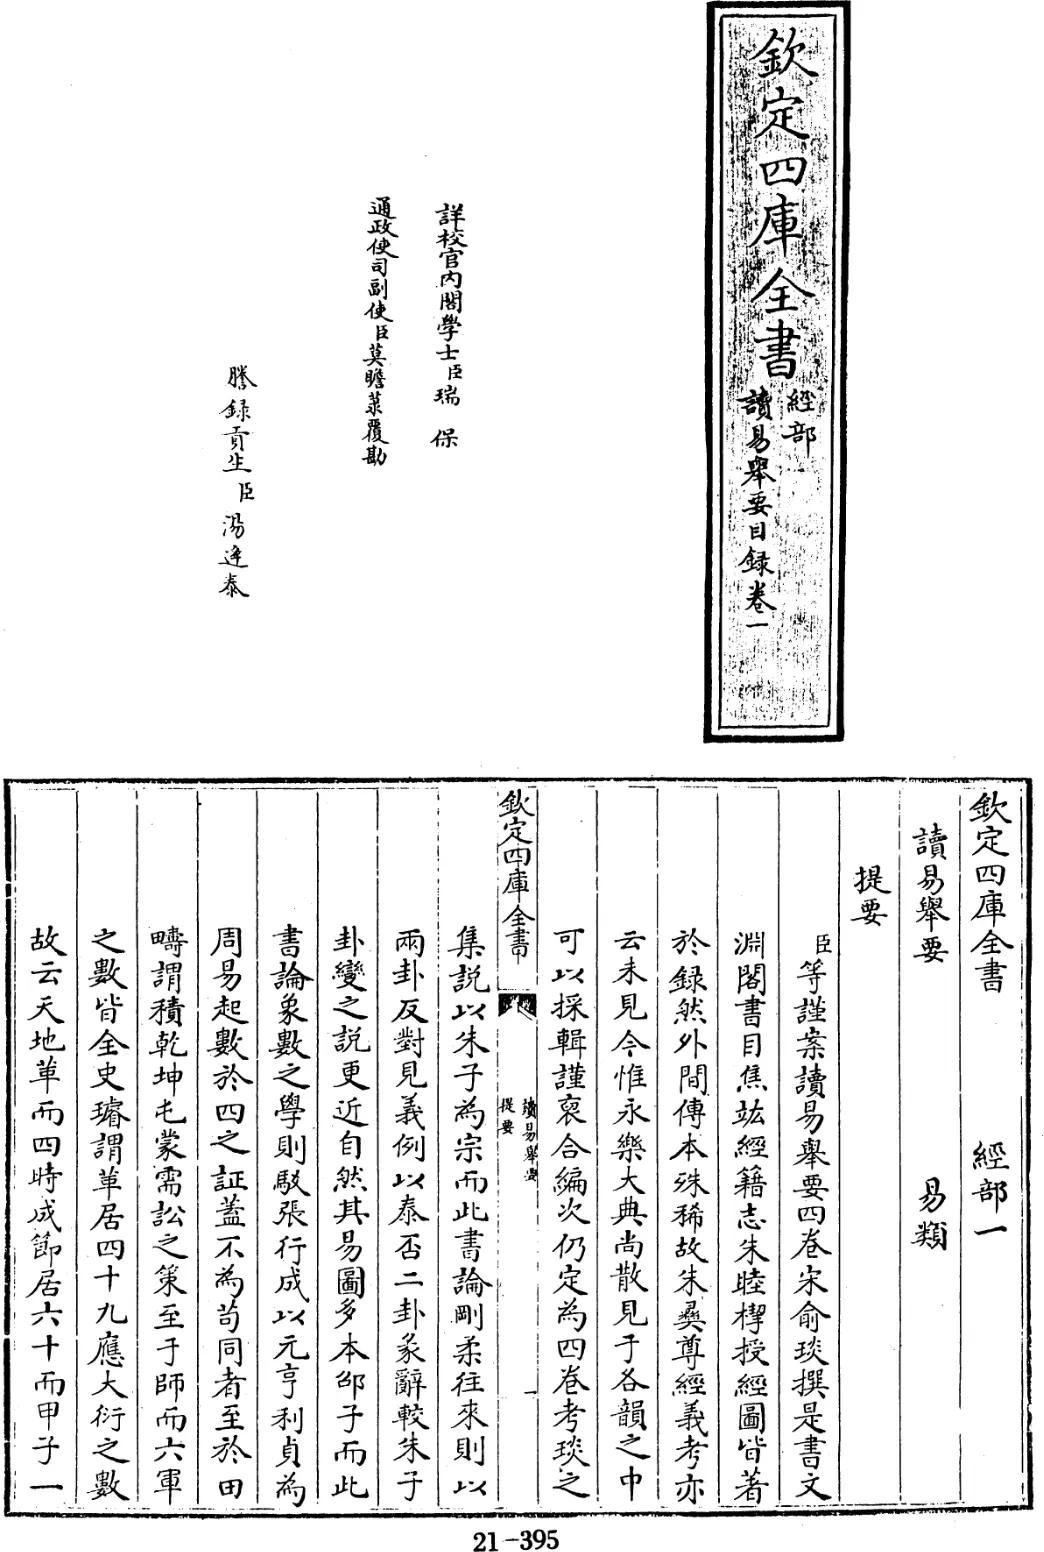 欽定四庫全書
經部
讀易舉要目錄卷一
詳校官內閣學士臣瑞保
通政使司副使臣莫瞻菉覆勘
謄錄貢生臣湯逢泰
欽定四庫全書 經部一
讀易舉要 易類
提要
臣等謹案讀易舉要四卷宋俞琰撰是書文
淵閣書目焦竑經籍志朱睦㮮授經圖皆著
於錄然外間傳本殊稀故朱彞尊經義考亦
云未見今惟永樂大典尚散見于各韻之中
可以採輯謹裒合編次仍定為四卷考琰之
欽定四庫全書
讀易舉要
提要
一
集說以朱子為宗而此書論剛柔往來則以
兩卦反對見義例以泰否二卦彖辭較朱子
卦變之說更近自然其易圖多本邵子而此
書論象數之學則駁張行成以元亨利貞為
周易起數於四之証蓋不為苟同者至於田
疇謂積乾坤屯蒙需訟之策至于師而六軍
之數皆全史璿謂革居四十九應大衍之數
故云天地革而四時成節居六十而甲子一
21-395